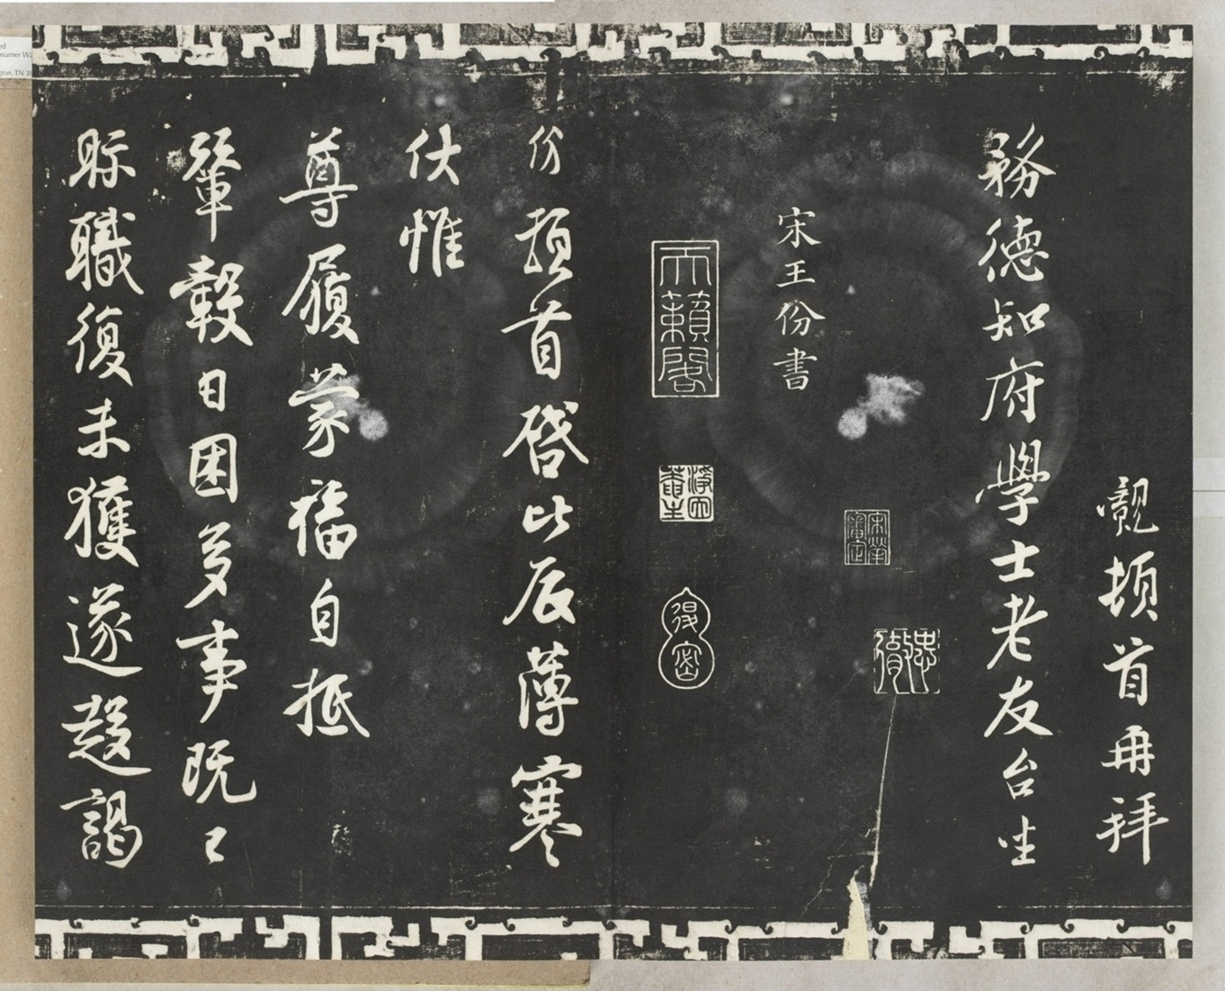 覿頓首再拜
務德知府學士老友台坐
宋犖審定
宋王份書
天籟閣
份頓首啓此辰薄寒
伏惟
尊履蒙福自抵
輦轂日困多事既已
眎職復未獲遂趍謁